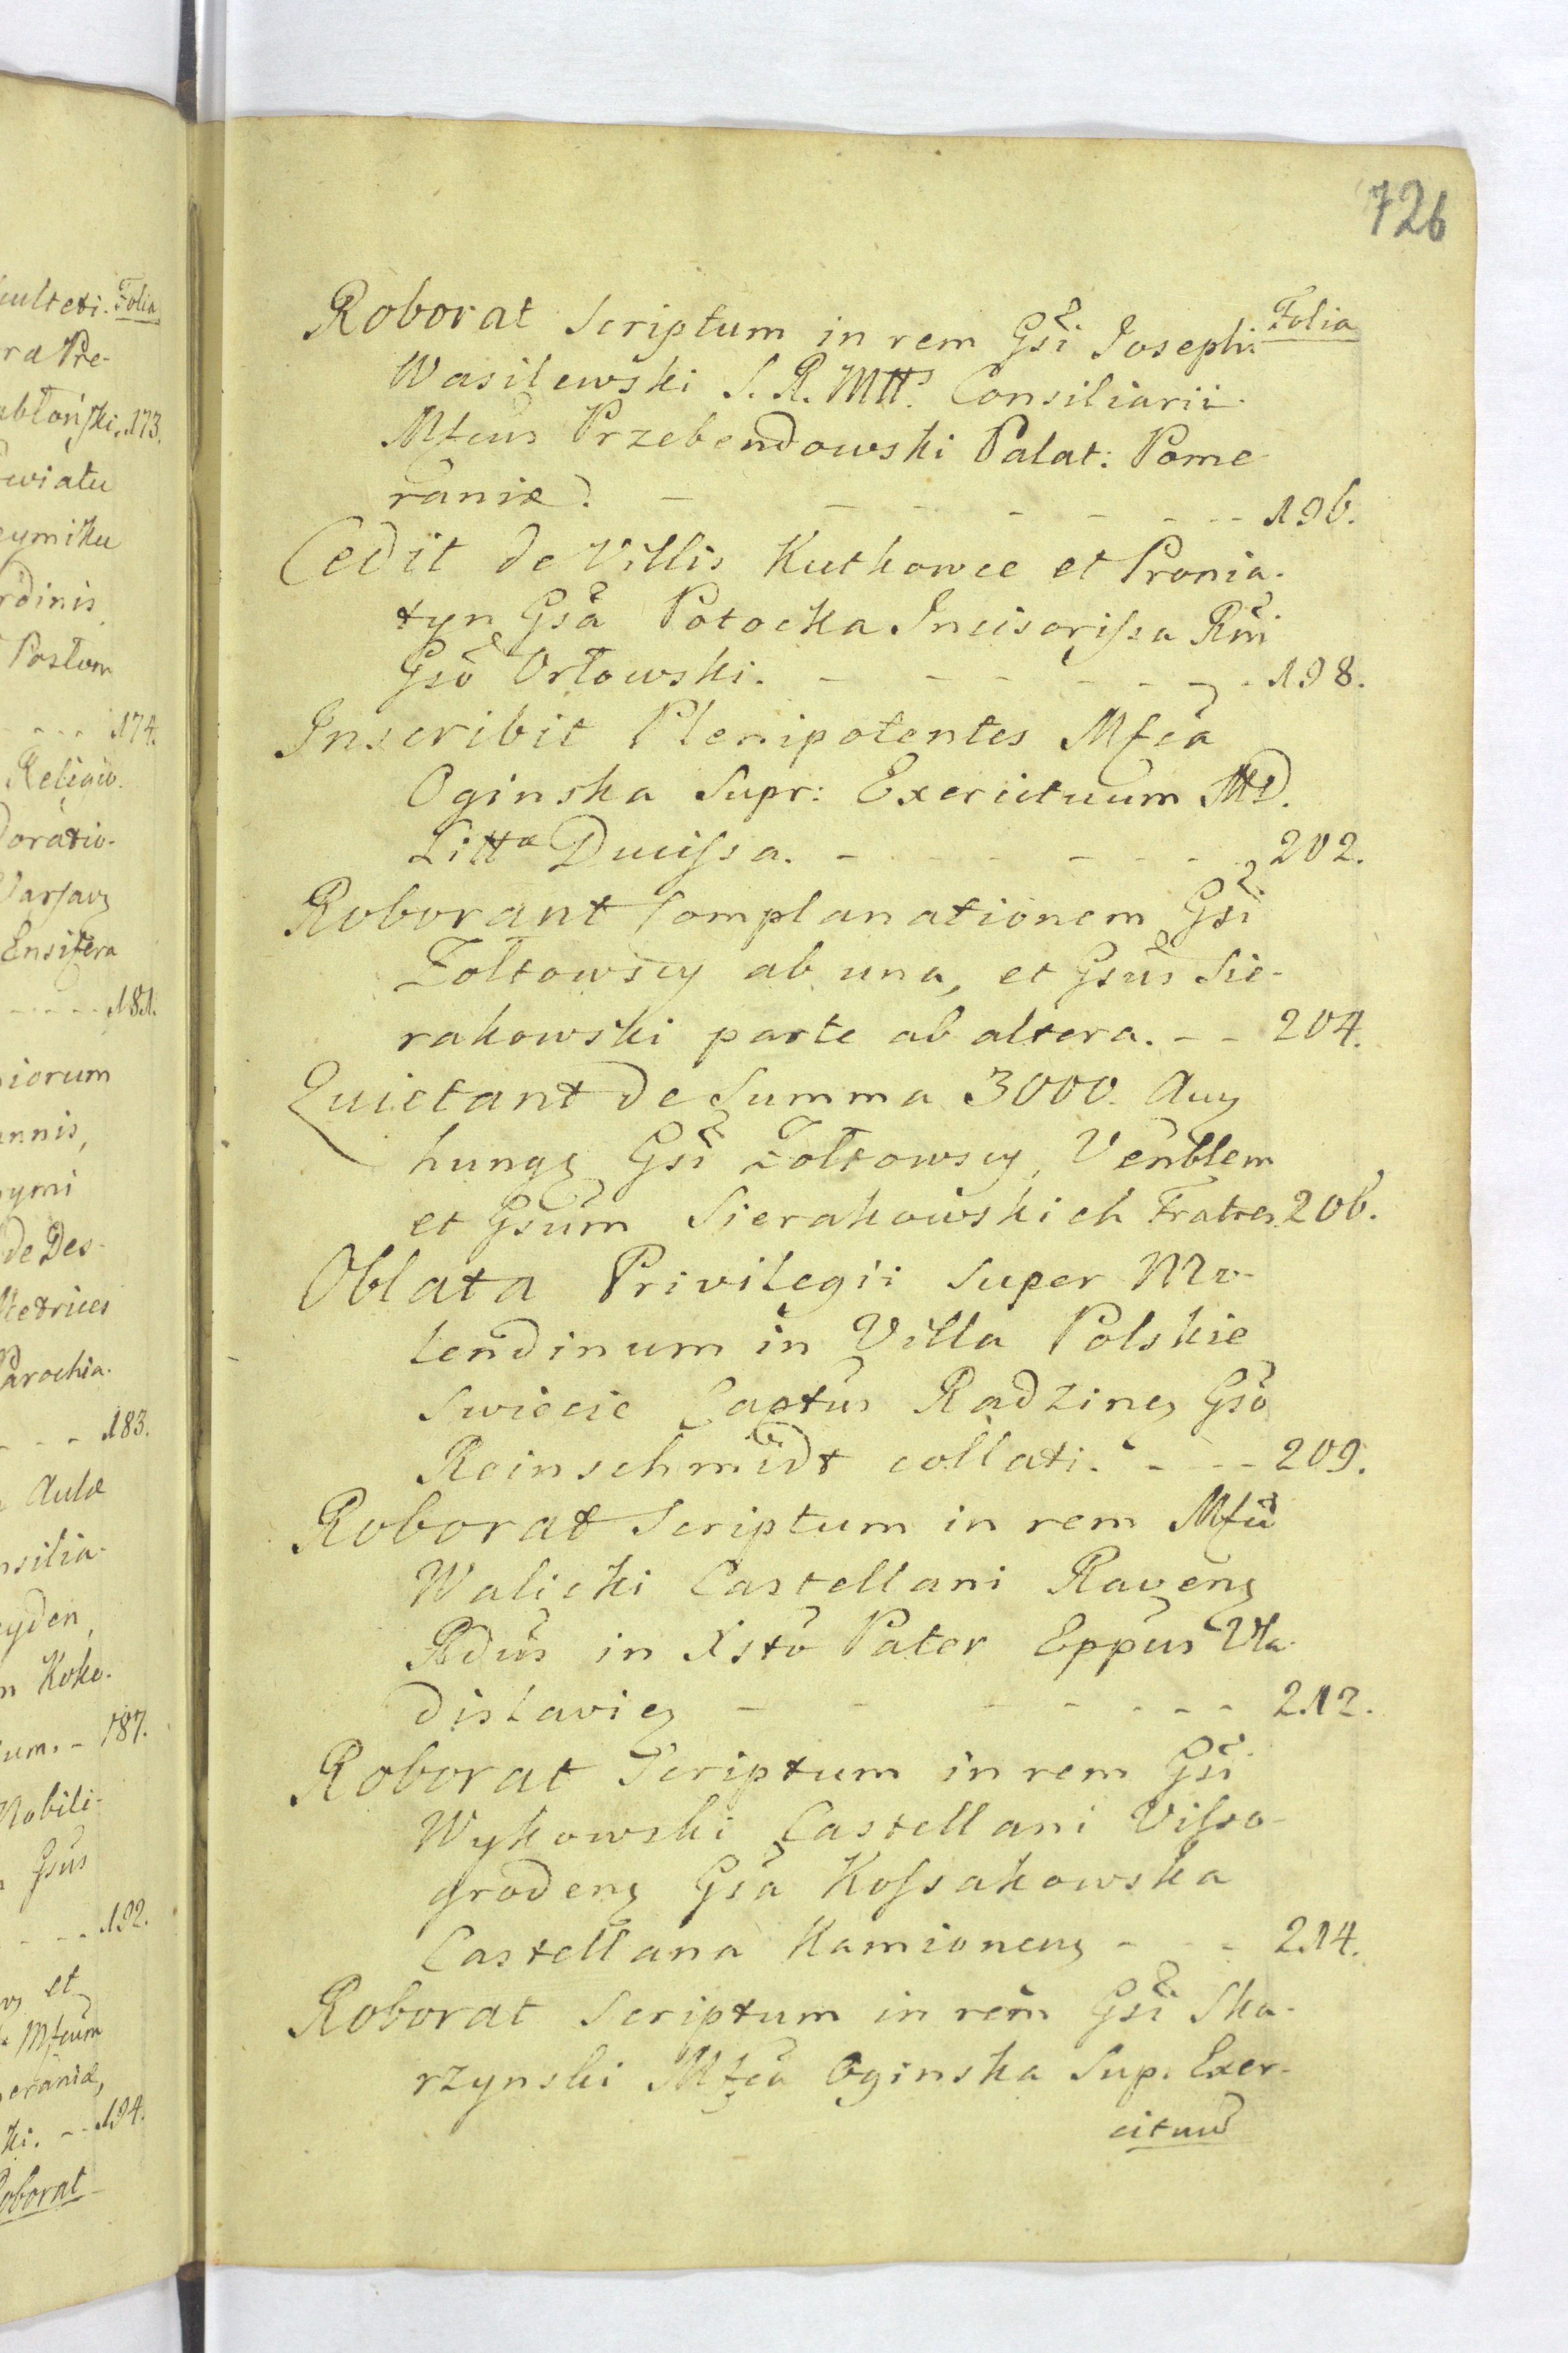 726
Folia
Roborat Scriptum in rem Gsi Josephi
Wasilewski S. R. Mtts. Consiliarii
Mfcus Przebendowski Palat: Pome-
raniæ. - - - - - - 196.
Cedit de Villis Kutkowce et Pronia-
tyn Gsa Potocka Incisorissa Rni
Gso Orłowski. - - - - - - 198.
Inscribit Plenipotentes Mfca
Oginska Supr: Exercituum MD.
Littæ Ducissa. - - - - - 202.
Roborant Complanationem Gsi
Zołtowscy ab una, et Gsus Sie-
rakowski parte ab altera. - - 204.
Quietant de Summa 3000. Aur
hung Gsi Zołtowscy, Venblem
et Gsum Sierakowskich Fratres. 206.
Oblata Privilegii super Mo-
lendinum in Villa Polskie
Swiecie Captus Radzing Gso
Reinschmidt collati. - - - 209.
Roborat Scriptum in rem Mfci
Walicki Castellani Raveng
Rdus in Xsto Pater Eppus Vla-
dislavieg - - - - - - 212.
Roborat Scriptum in rem Gsi
Wykowski Castellani Visso-
grodeng Gsa Kossakowska
Castellana Kamioneng - - - 214.
Roborat Scriptum in rem Gsi Ska-
rzynski Mfca Oginska Sup. Exer-
cituu
culteti. Folia
ra Pre-
abłoński. 173.
wiatu
eymiku
rdinis,
Postom
- - - 174.
Religio.
oratio-
Varsavg
Ensifera
- - - 181.
iorum
annis,
ymi
de Des-
Metrices
Parochia-
- - - 183.
Aulæ
nsilia-
eyden,
n Koko-
um. - 187.
Nobili-
Gsus
- - - 192.
et
Mfcum
eraniæ,
ki. - - 194.
Roborat